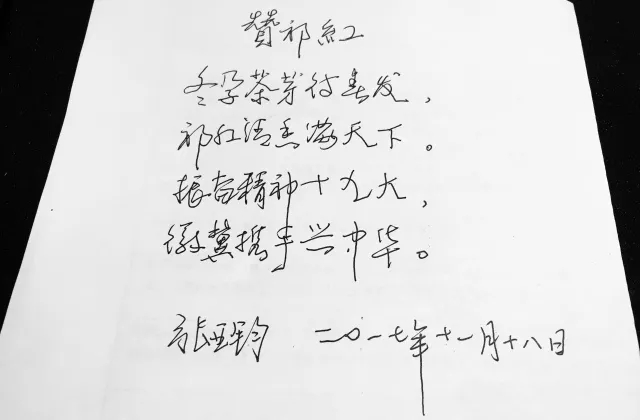 赞祁红
冬孕茶芽待春发，
祁红清香满天下。
振奋精神十九大，
徽冀携手兴中华。
张亚钧 二〇一七年十一月十八日